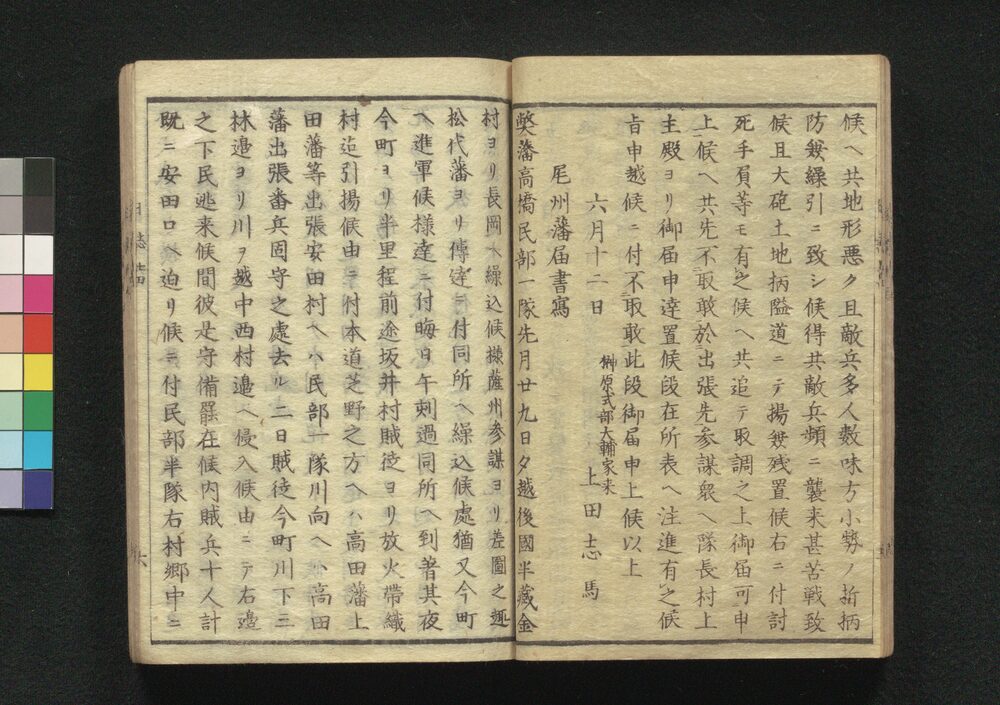 候ヘ共地形悪ク且敵兵多人数味方小勢ノ折柄
防戦繰引ニ致シ候得共敵兵頻ニ襲来甚苦戦致
候且大砲土地柄隘道ニテ揚兼残置候右ニ付討
死手負等モ有之候ヘ共追テ取調之上御届可申
上候ヘ共先不取敢於出張先参謀衆ヘ隊長村上
主殿ヨリ御届申達置候段在所表ヘ注進有之候
旨申越候ニ付不取敢此段御届申上候以上
榊原式部大輔家来
六月十二日 上田志馬
尾州藩届書寫
弊藩高橋民部一隊先月廿九日夕越後國半藏金
村ヨリ長岡ヘ繰込候様薩州参謀ヨリ差圖之趣
松代藩ヨリ傳達ニ付同所ヘ繰込候處猶又今町
ヘ進軍候様達ニ付晦日午刺過同所ヘ到著其夜
今町ヨリ半里程前途坂井村賊徒ヨリ放火帶織
村迄引揚候由ニ付本道芝野之方ヘハ高田藩上
田藩等出張安田村ヘハ民部一隊川向ヘハ高田
藩出張番兵固守之處去ル二日賊徒今町川下ニ
林邉ヨリ川ヲ越中西村邉ヘ侵入候由ニテ右邉
之下民逃来候間彼是守備罷在候内賊兵十人計
既ニ安田口ヘ迫リ候ニ付民部半隊右村郷中ニ
日誌
六